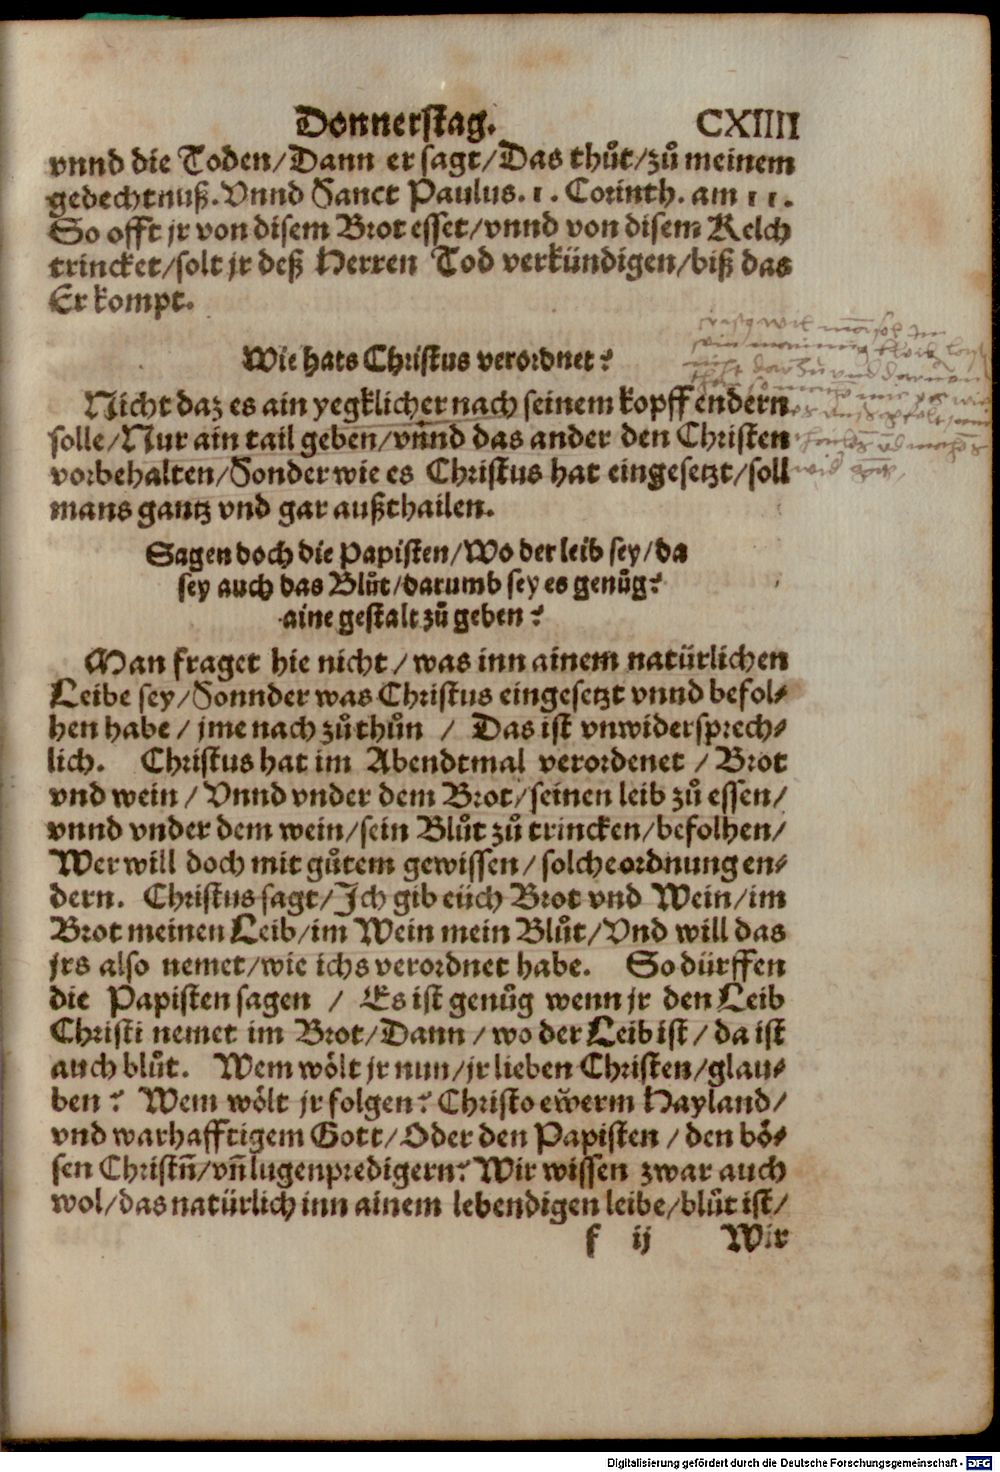 Donnerstag. CXIIII
vnnd die Toden/Dann er sagt/Das thůt/zů meinem
gedechtnuß. Vnnd Sanct Paulus. 1. Corinth. am 11.
So offt jr von disem Brot esset/vnnd von disem Kelch
trincket/solt jr deß Herren Tod verkündigen/biß das
Er kompt.
Wie hats Christus verordnet?
Nicht daz es ain yegklicher nach seinem kopff endern
solle/Nur ain tail geben/vnnd das ander den Christen
vorbehalten/Sonder wie es Christus hat eingesetzt/soll
mans gantz vnd gar außthailen.
Sagen doch die Papisten/Wo der leib sey/da
sey auch das Blůt/darumb sey es genůg?
aine gestalt zů geben?
Man fraget hie nicht/was inn ainem natürlichen
Leibe sey/Sonnder was Christus eingesetzt vnnd befol-
hen habe/jme nach zůthůn / Das ist vnwidersprech-
lich. Christus hat im Abendtmal verordenet/Brot
vnd wein/Vnnd vnder dem Brot/seinen leib zů essen/
vnnd vnder dem wein/sein Blůt zů trincken/befolhen/
Wer will doch mit gůtem gewissen/solche ordnung en-
dern. Christus sagt/Ich gib eüch Brot vnd Wein/im
Brot meinen Leib/im Wein mein Blůt/Vnd will das
jrs also nemet/wie ichs verordnet habe. So dürffen
die Papisten sagen / Es ist genůg wenn jr den Leib
Christi nemet im Brot/Dann/wo der Leib ist/da ist
auch blůt. Wem wölt jr nun/jr lieben Christen/glau-
ben? Wem wölt jr folgen? Christo ewerm Hayland/
vnd warhafftigem Gott/Oder den Papisten/den bö-
sen Christn̄/vn̄ lugenpredigern? Wir wissen zwar auch
wol/das natürlich inn ainem lebendigen leibe/blůt ist/
f ij Wir
Digitalisierung gefördert durch die Deutsche Forschungsgemeinschaft - DFG